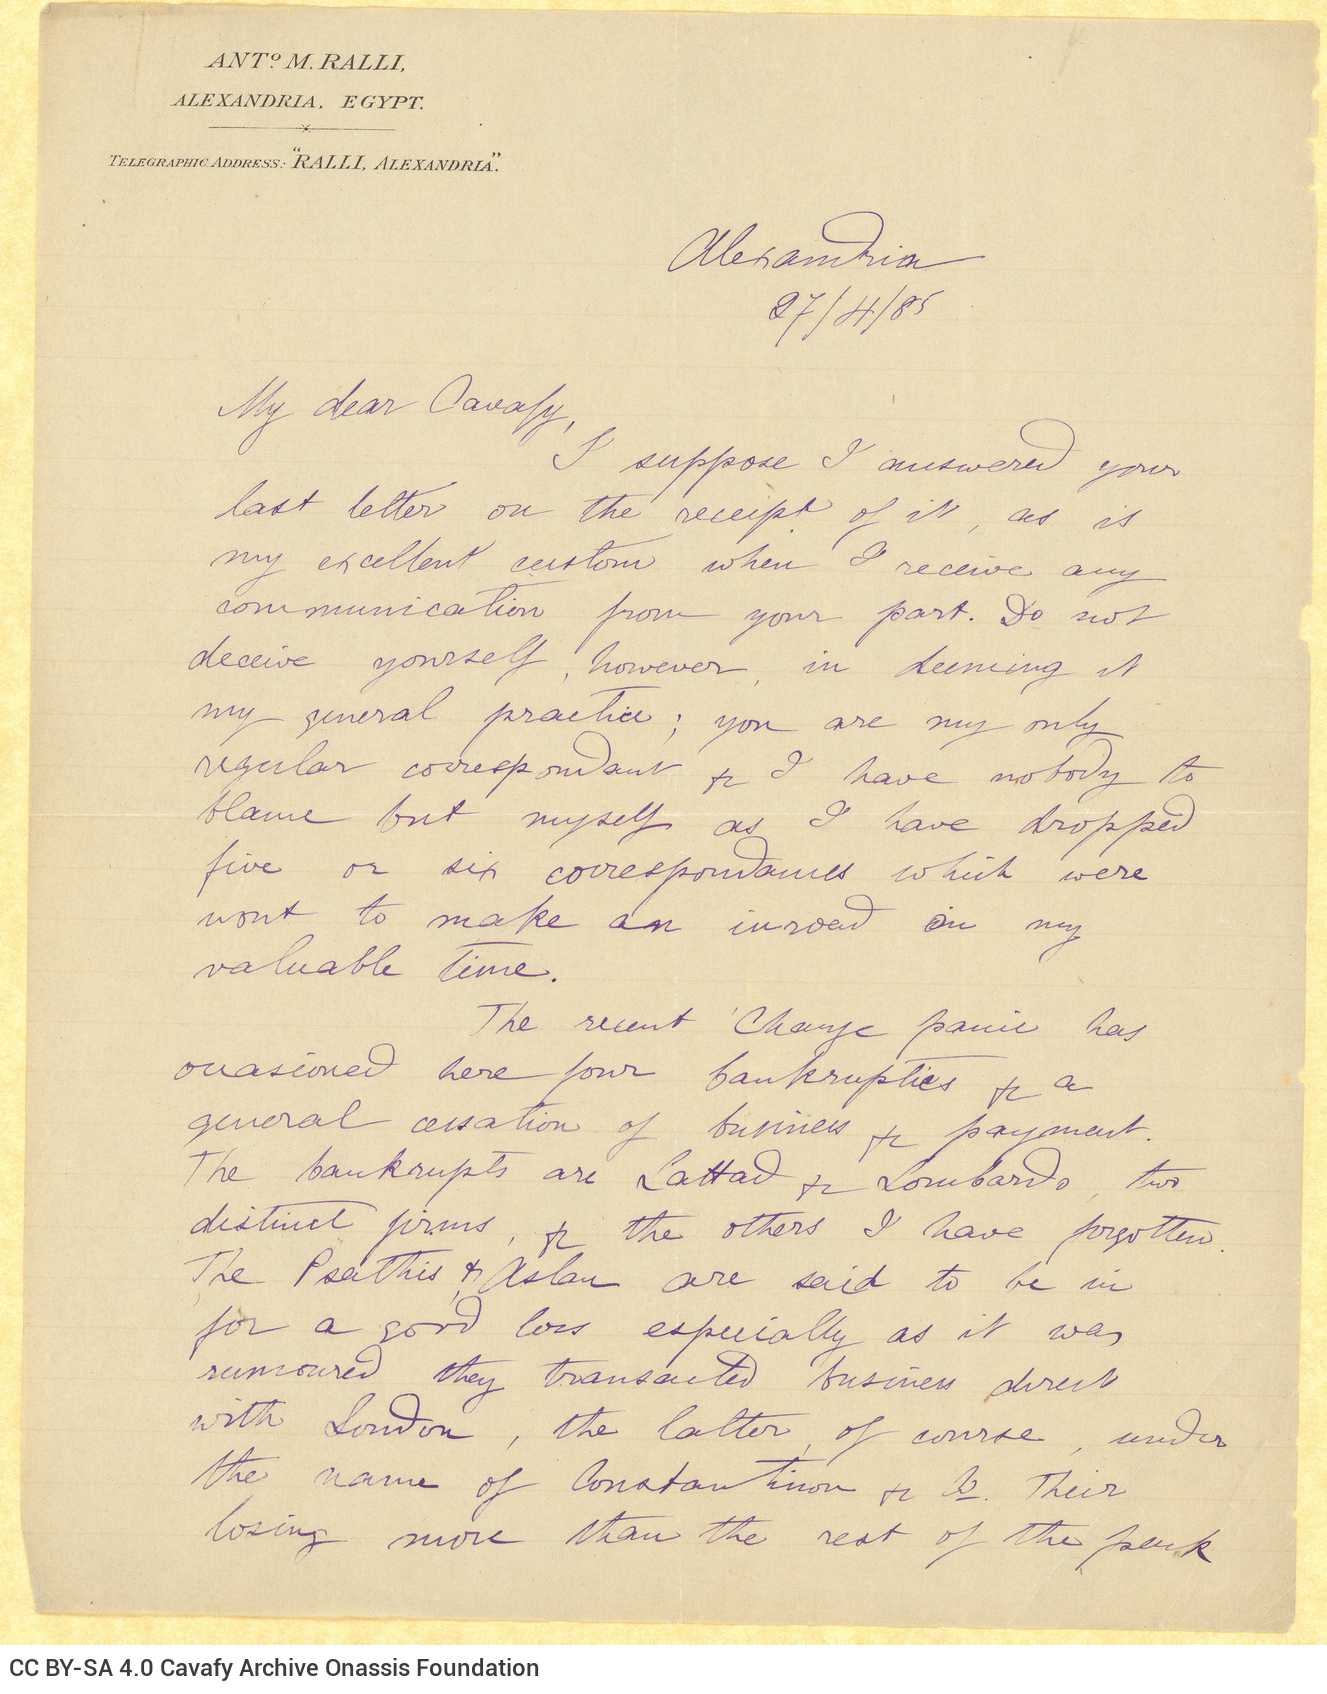 ANTº M. RALLI,
ALEXANDRIA, EGYPT.
TELEGRAPHIC ADDRESS: "RALLI, ALEXANDRIA".
Alexandria
27/4/85
My dear Cavafy,
I suppose I answered your
last letter on the receipt of it, as is
my excellent custom when I receive any
communication from your part. Do not
deceive yourself, however, in deeming it
my general practice; you are my only
regular correspondant & I have nobody to
blame but myself as I have dropped
five or six correspondances which were
wont to make an inroad on my
valuable time.
The recent 'Change panic has
occasioned here four bankrupties & a
general cessation of business & payment.
The bankrupts are Lattad & Lombardo, two
distinct firms, & the others I have forgotten.
The Psathis & Aslan are said to be in
for a good loss especially as it was
rumoured they transacted business direct
with London, the latter, of course, under
the name of Constantinon & Co. Their
losing more than the rest of the pack
CC BY-SA 4.0 Cavafy Archive Onassis Foundation